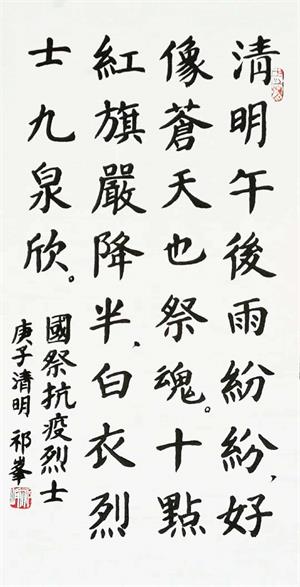 清明午後雨紛紛,好
像蒼天也祭魂。十點
紅旗嚴降半,白衣烈
士九泉欣。
國祭抗疫烈士
庚子清明 祁峯